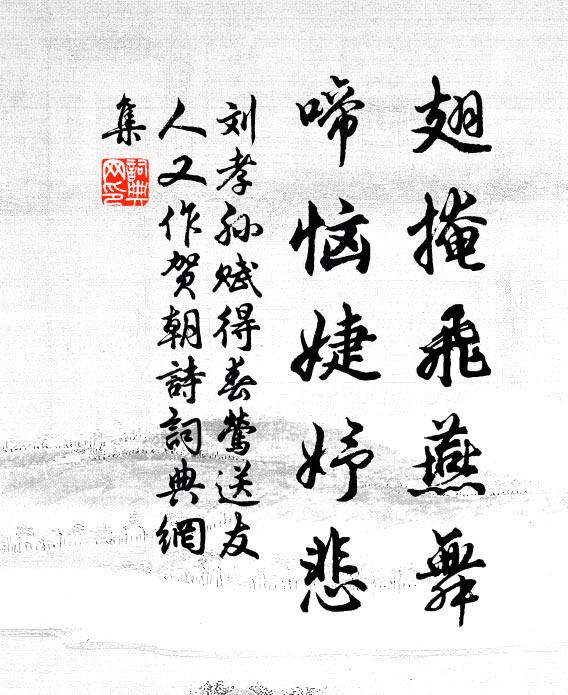 翅掩飛燕舞
啼恼婕妤悲
刘孝孙赋得春莺送友
人又作贺朝詩詞典網
集
詞典
网印